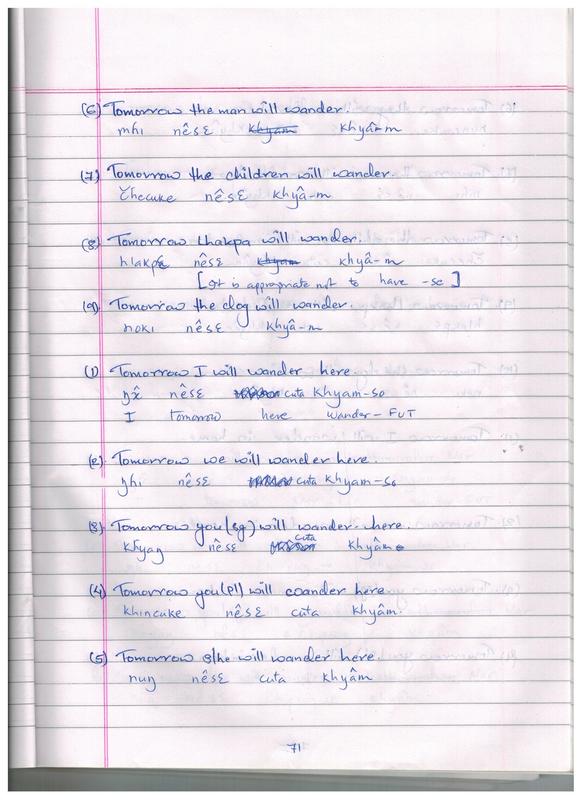 (6) Tomorrow the man will wander.
mhi nêsɛ khyam khyâ-m
(7) Tomorrow the children will wander.
nêsɛ khyâ-m
(8) Tomorrow Lhakpa will wander.
nêsɛ khyam khyâ-m
[It is appropriate not to have -se]
(9) Tomorrow the dog will wander.
noki nêsɛ khyâ-m
(1) Tomorrow I will wander here.
nêsɛ cuta khyam-so
I tomorrow here wander-FUT
(2) Tomorrow we will wander here.
ŋhi nêsɛ cuta khyam-so
(3) Tomorrow you(sg) will wander here.
khyaŋ nêsɛ cuta
(4) Tomorrow you(pl) will wander here
khincuke nêsɛ cuta khyâm.
(5) Tomorrow s/he will wander here.
nuŋ nêsɛ cuta khyâm
71